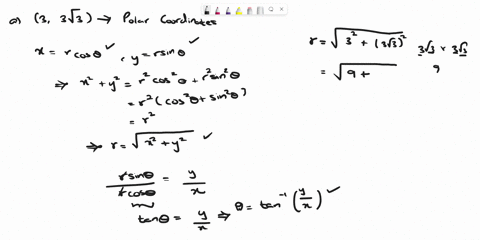 a) (3, 3√3) → Polar Coordinates
x = r cosθ ✓, y = r sinθ ✓
⇒ x² + y² = r² cos²θ + r² sin²θ
= r² (cos²θ + sin²θ)
= r²
⇒ r = √(x² + y²) ✓
r sinθ / r cosθ = y / x
tanθ = y / x ⇒ θ = tan⁻¹ (y / x) ✓
r = √(3² + (3√3)²)
= √(9 +
3√3 × 3√3
9